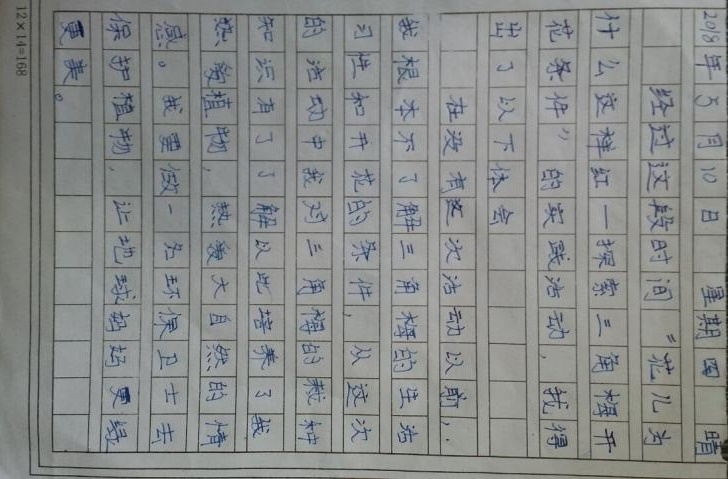 2018年5月10日 星期四 晴
经过这段时间“花儿为
什么这样红一探索三角梅开
花条件”的实践活动,我得
出了以下体会
在没有这次活动以前,.
我根本不了解三角梅的生活
习性和开花的条件,从这次
的活动中我对三角梅的栽种
知识有了了解以此培养了我
热爱植物,热爱大自然的情
感。我要做一名环保卫士去
保护植物,让地球妈妈更绿
更美。
12×14=168